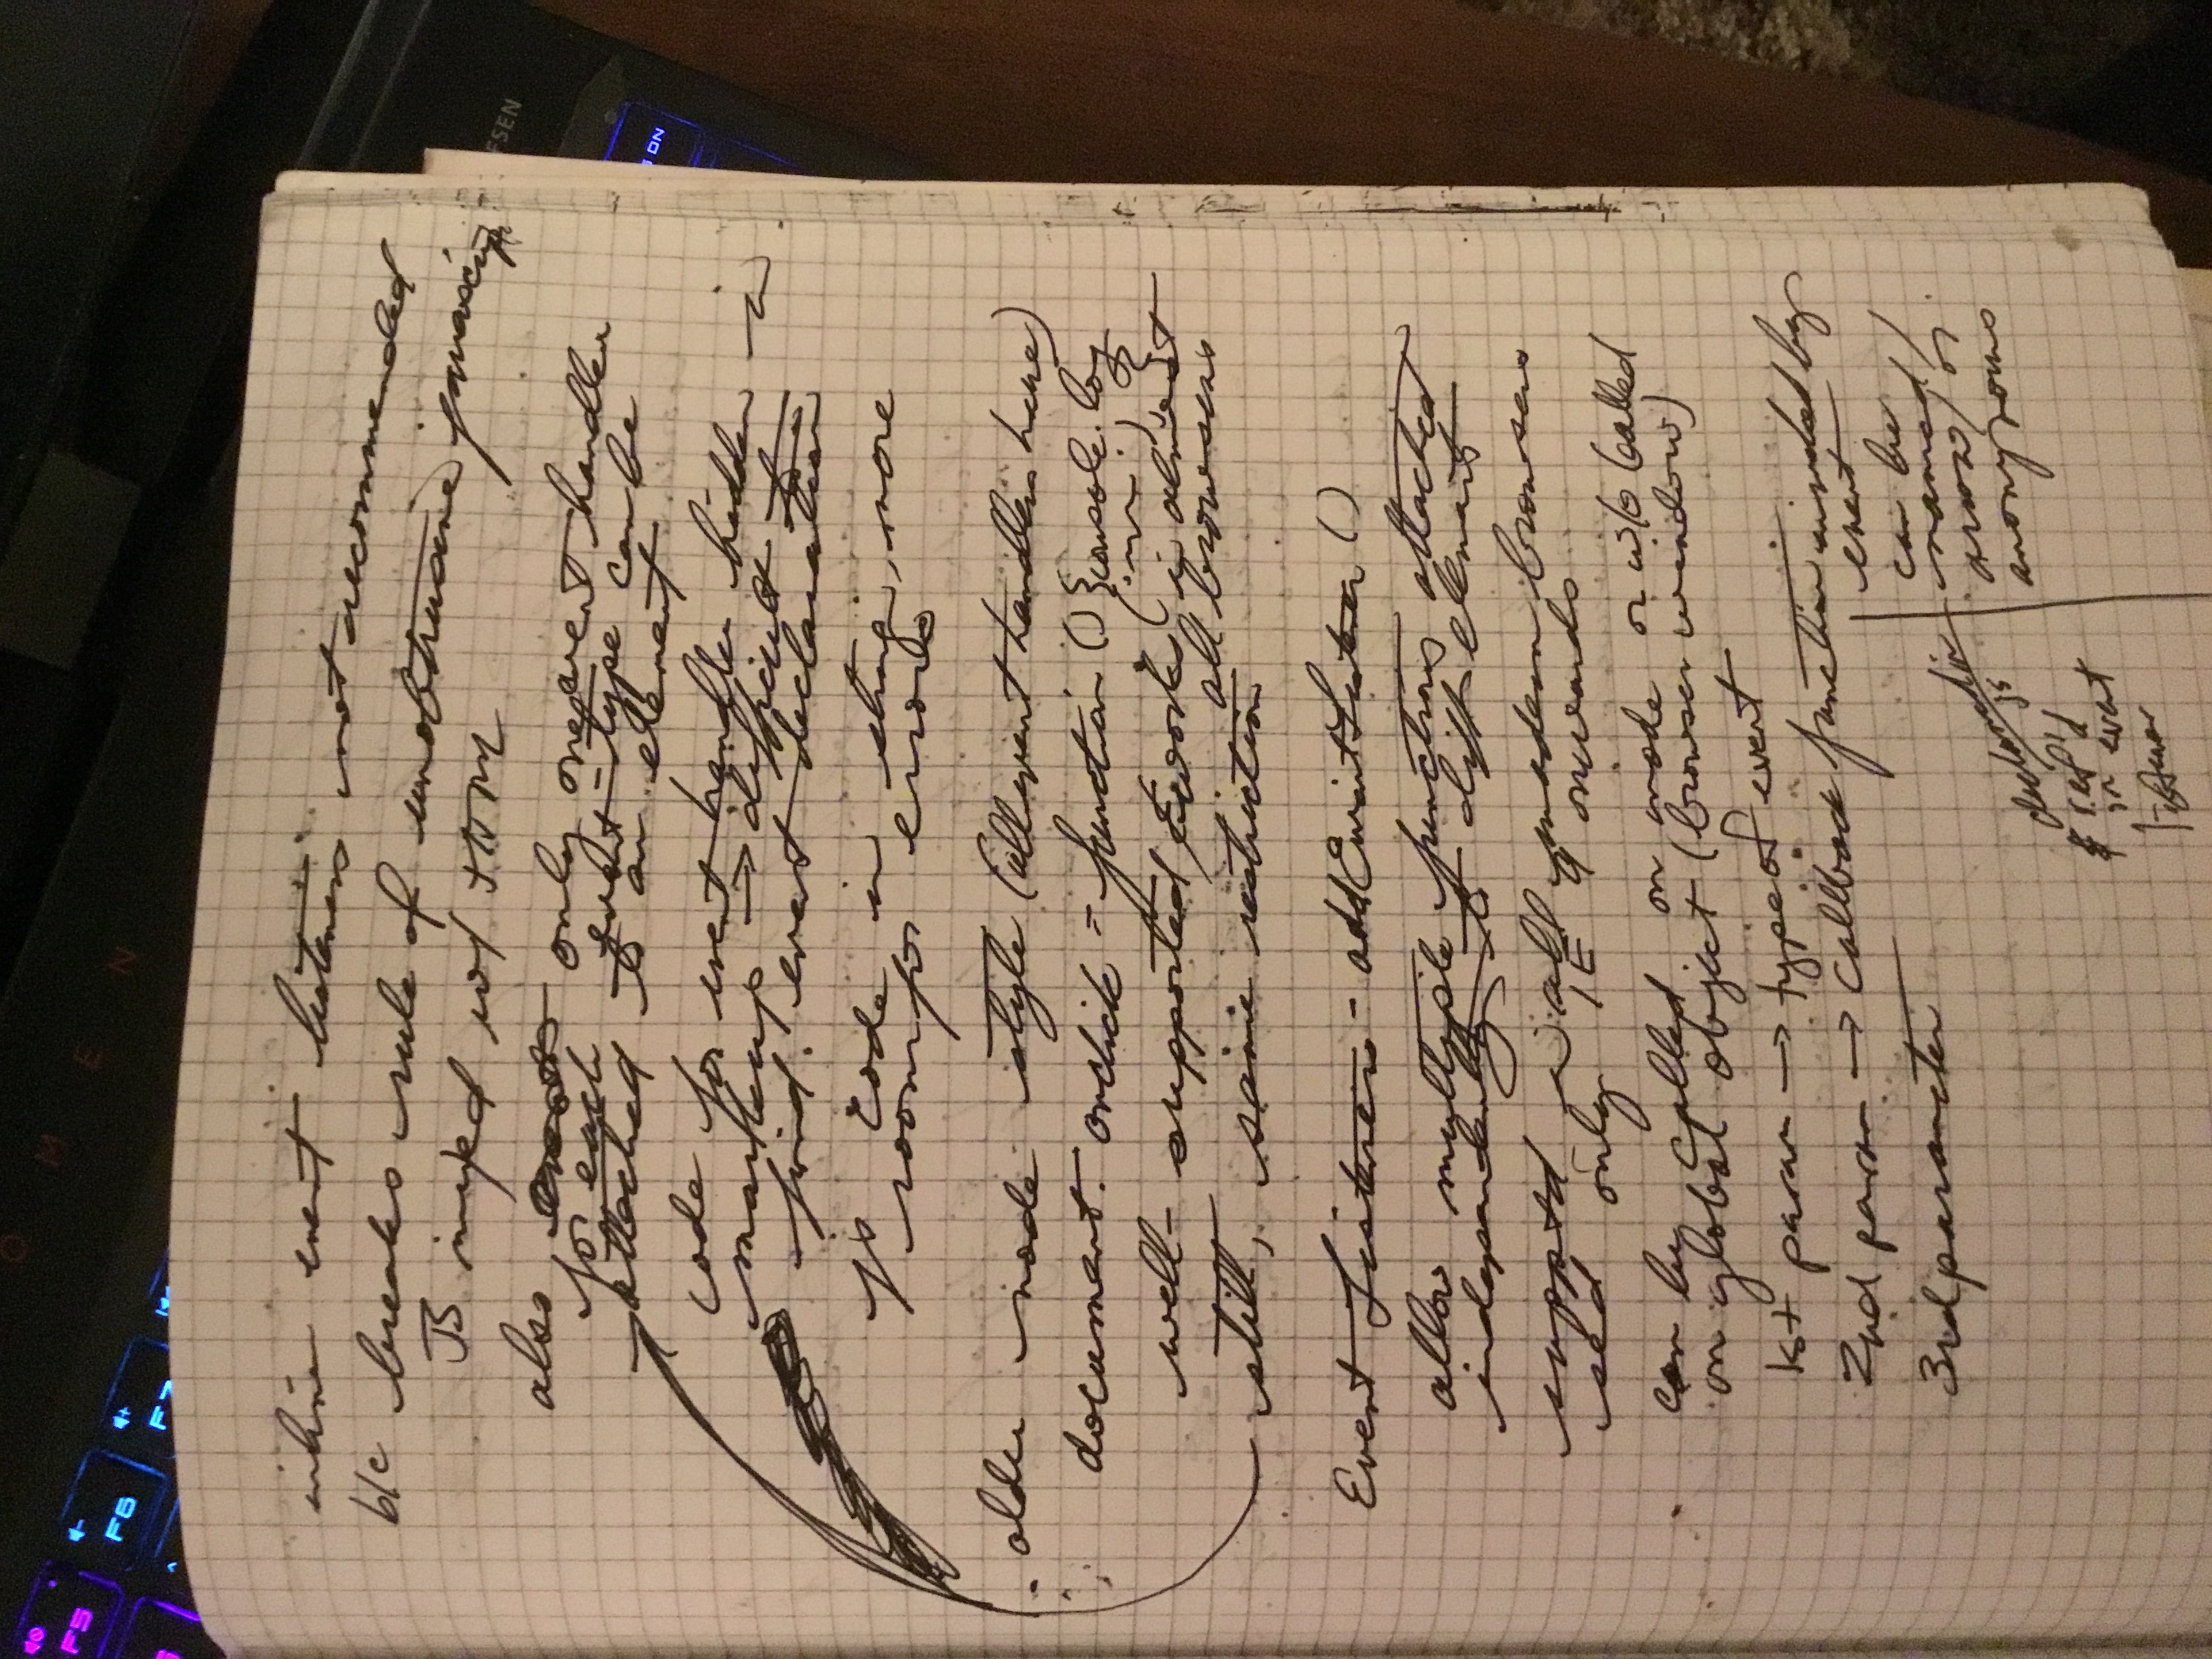 O M E N
F5
F6
F7
inline event listeners not recommended
b/c breaks rule of unobtrusive javascript
JS mixed w/ HTML
also, only one event handler
for each event-type can be
attached to an element
code for event handler hidden in
markup → difficult to
find. event declaration
js code in string, more
room for errors
older node style (all event handlers have)
document.onclick = function () {console.log
( ) }
well-supported & works in almost
all browsers
still, same restriction
Event Listeners - addEventListener ()
allow multiple functions attached
independently to diff element
suppted in all modern browsers
only IE 9 onwards
can be called on node or w/o (called
on global object (browser window)
1st param → type of event
2nd param → callback function invoked by
event
can be
named /
arrow / or
anonymous
3rd parameter
js
& ref'd
in event
listener
FSEN
ON